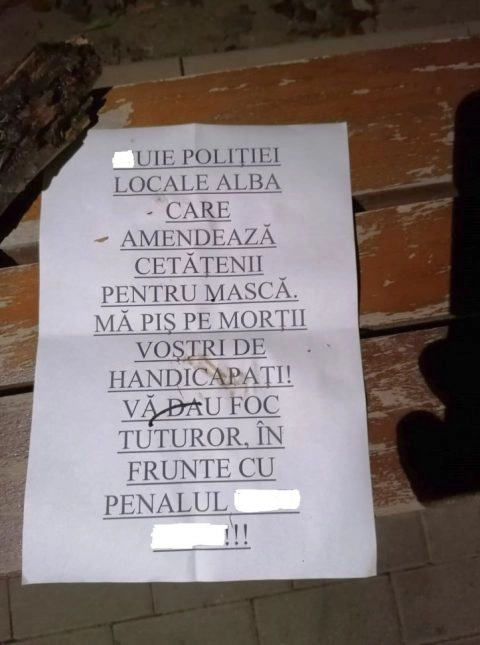 UIE POLIȚIEI
LOCALE ALBA
CARE
AMENDEAZĂ
CETĂȚENII
PENTRU MASCĂ.
MĂ PIȘ PE MORȚII
VOȘTRI DE
HANDICAPAȚI!
VĂ DAU FOC
TUTUROR, ÎN
FRUNTE CU
PENALUL
!!!